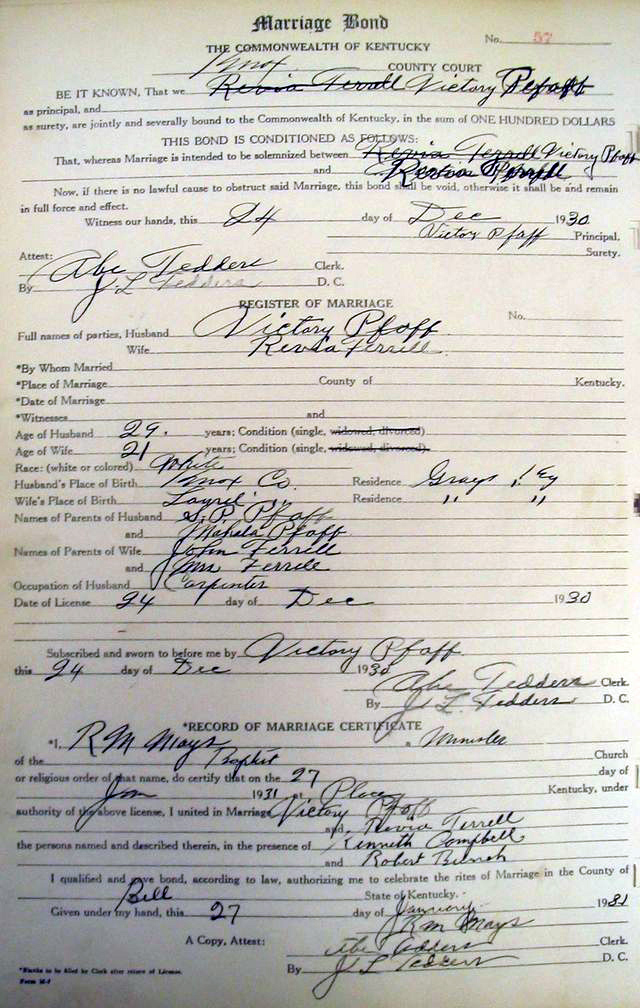 Marriage Bond
No. 57
THE COMMONWEALTH OF KENTUCKY
Knox COUNTY COURT
BE IT KNOWN, That we Revia Terrell Victory Pfaff
as principal, and
as surety, are jointly and severally bound to the Commonwealth of Kentucky, in the sum of ONE HUNDRED DOLLARS
THIS BOND IS CONDITIONED AS FOLLOWS:
That, whereas Marriage is intended to be solemnized between Revia Terrell Victory Pfaff
and Revia
Now, if there is no lawful cause to obstruct said Marriage, this bond shall be void, otherwise it shall be and remain
in full force and effect.
Witness our hands, this 24 day of Dec 1930
Victor Pfaff Principal.
Surety.
Attest:
Abe Tedders Clerk.
By J L Tedders D. C.
REGISTER OF MARRIAGE
No.
Full names of parties, Husband Victory Pfaff
Wife Revia Ferrell
*By Whom Married
*Place of Marriage County of Kentucky.
*Date of Marriage
*Witnesses and
Age of Husband 29. years; Condition (single, widowed, divorced)
Age of Wife 21 years; Condition (single, widowed, divorced).
Race: (white or colored) White
Husband's Place of Birth Knox Co. Residence Grays Ky
Wife's Place of Birth Laurel " Residence " "
Names of Parents of Husband S. P. Pfaff
and Mahala Pfaff
Names of Parents of Wife John Ferrell
and Mrs Ferrell
Occupation of Husband Carpenter
Date of License 24 day of Dec 1930
Subscribed and sworn to before me by Victory Pfaff
this 24 day of Dec 1930
Abe Tedders Clerk.
By J L Tedders D. C.
*RECORD OF MARRIAGE CERTIFICATE
*I, R M Mays a Minister
of the Baptist Church
or religious order of that name, do certify that on the 27 day of
Jan 1931 at Place Kentucky, under
authority of the above license, I united in Marriage Victory Pfaff
and Revia Terrell
the persons named and described therein, in the presence of Kenneth Campbell
and Robert Bunch
I qualified and gave bond, according to law, authorizing me to celebrate the rites of Marriage in the County of
Bell State of Kentucky.
Given under my hand, this 27 day of January 1931
R M Mays
A Copy, Attest: Abe Tedders Clerk.
By J L Tedders D. C.
*Blanks to be filed by Clerk after return of License.